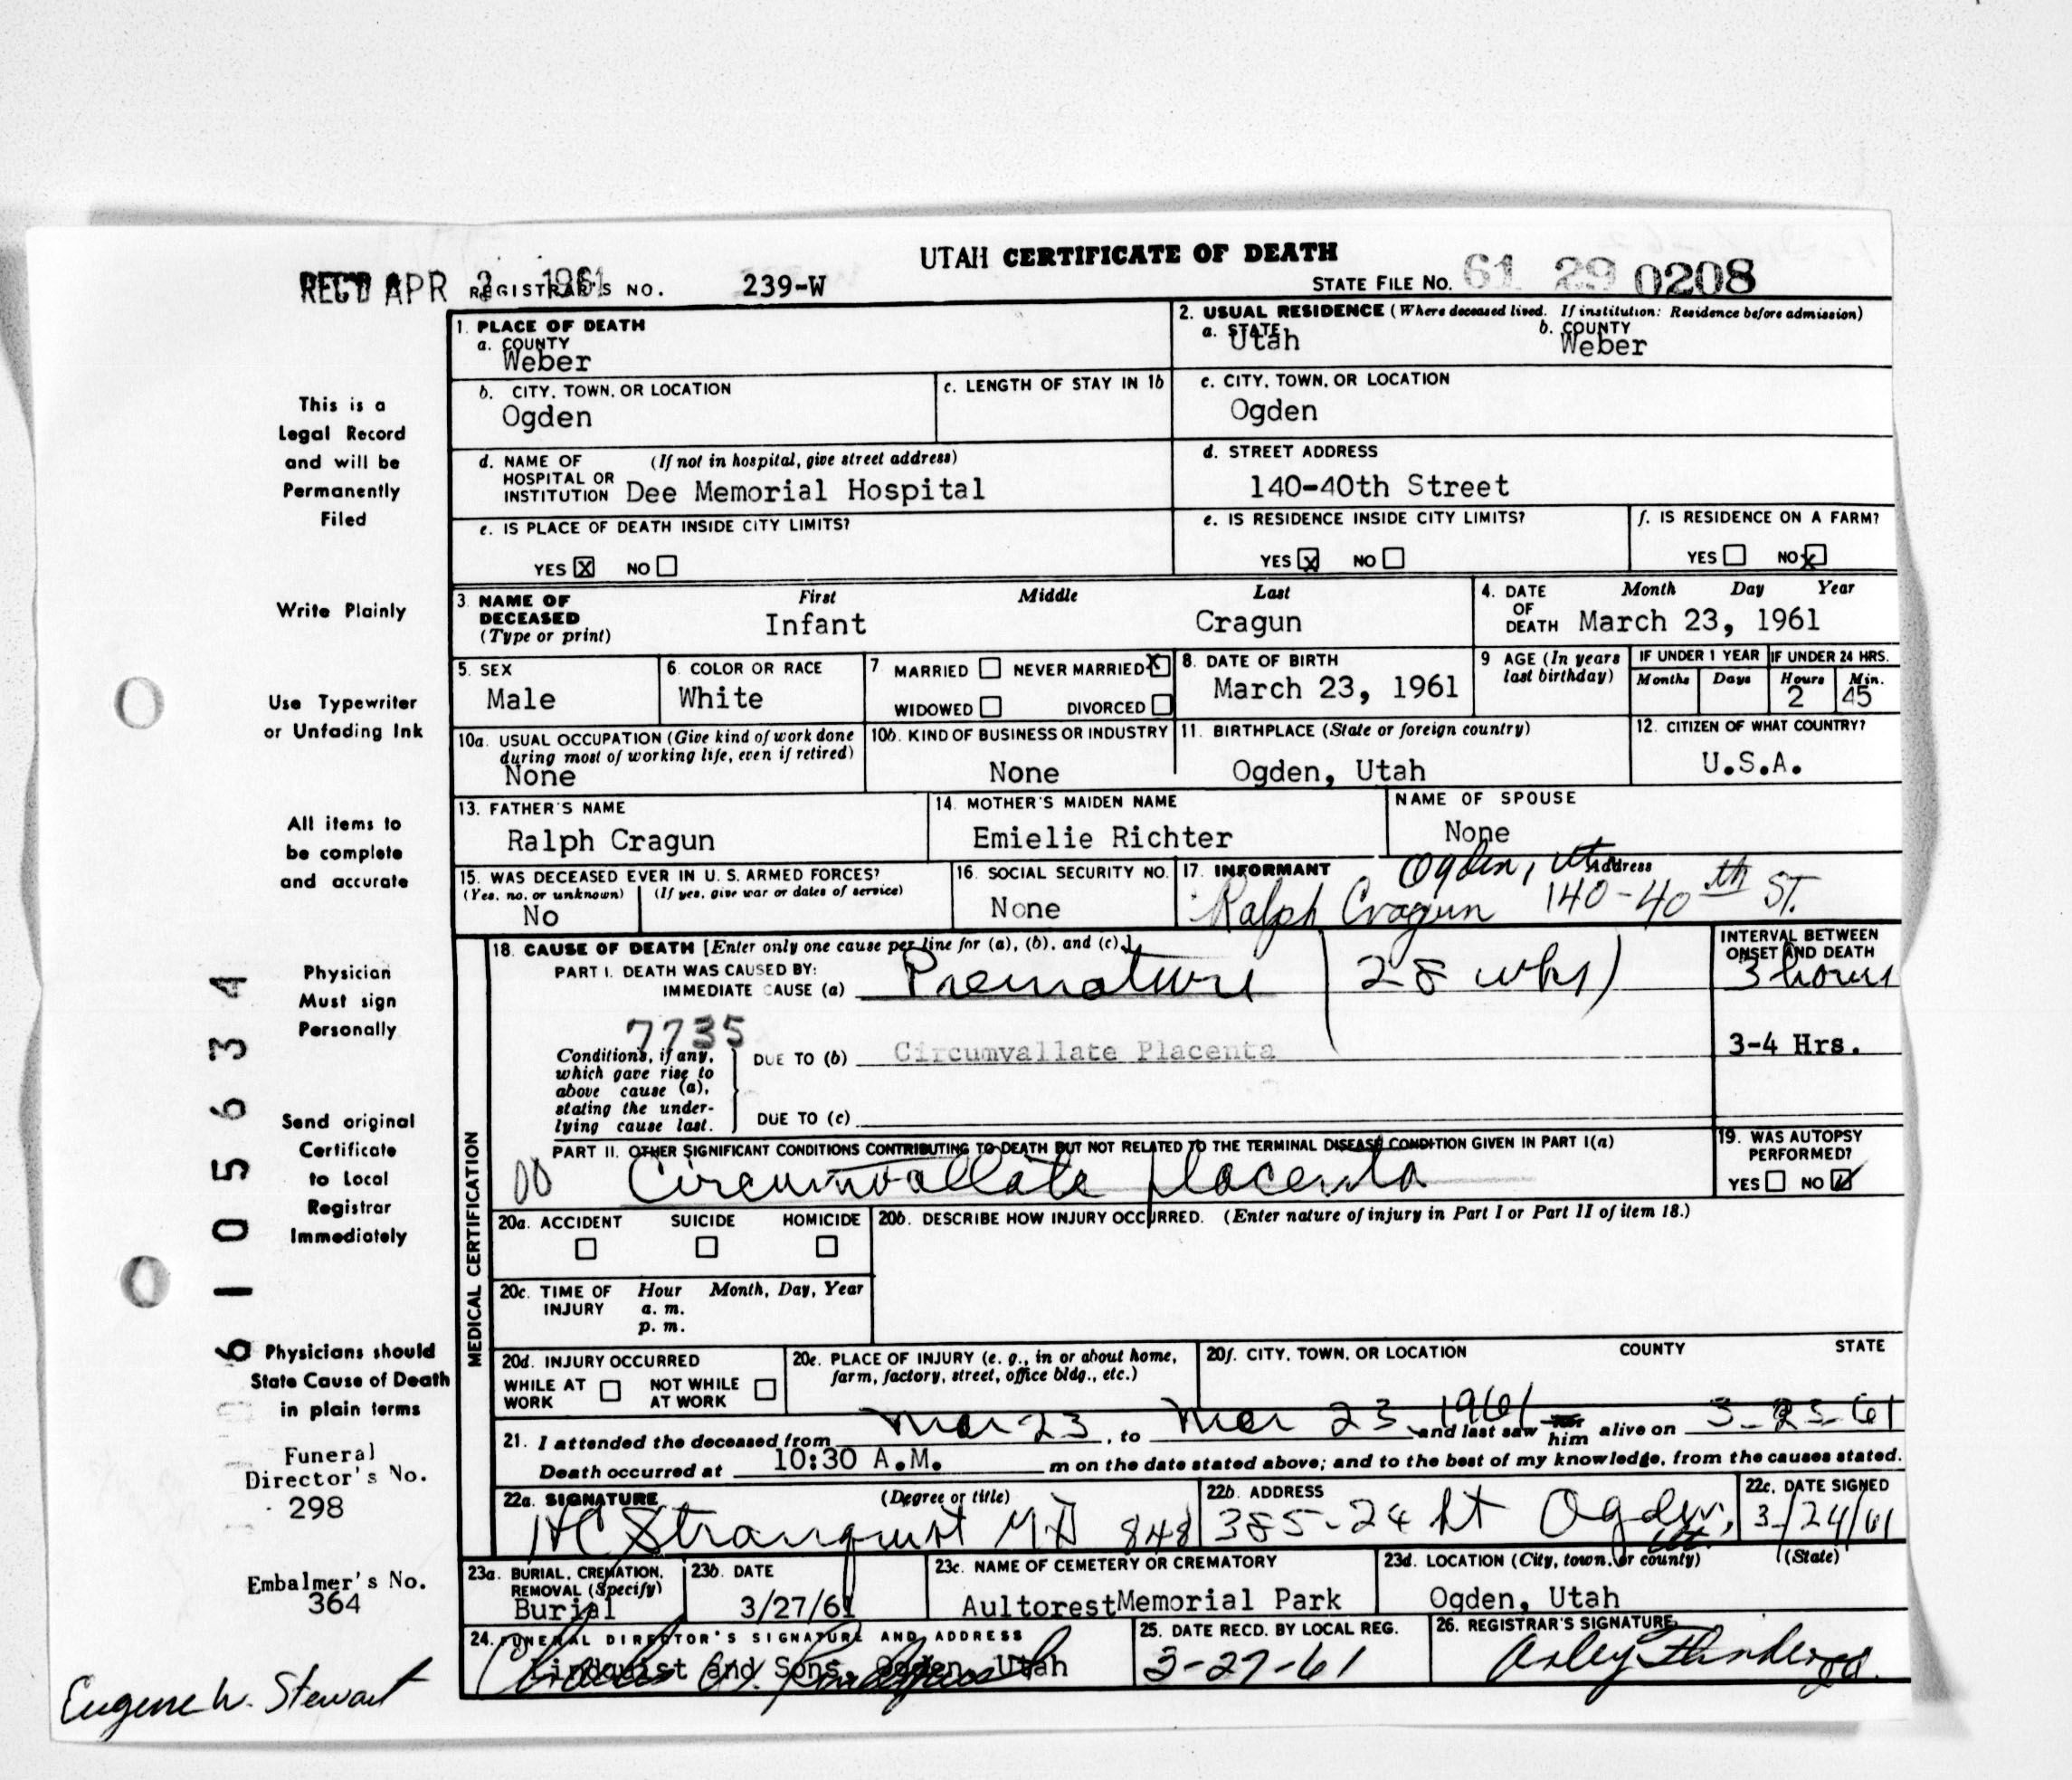 UTAH CERTIFICATE OF DEATH
REC'D APR 3 1961 REGISTRAR'S NO. 239-W STATE FILE NO. 61 29 0208
1. PLACE OF DEATH
a. COUNTY
Weber
2. USUAL RESIDENCE (Where deceased lived. If institution: Residence before admission)
a. STATE Utah b. COUNTY Weber
b. CITY, TOWN, OR LOCATION
Ogden
c. LENGTH OF STAY IN 1b
c. CITY, TOWN, OR LOCATION
Ogden
d. NAME OF HOSPITAL OR INSTITUTION (If not in hospital, give street address)
Dee Memorial Hospital
d. STREET ADDRESS
140-40th Street
e. IS PLACE OF DEATH INSIDE CITY LIMITS?
YES X NO
e. IS RESIDENCE INSIDE CITY LIMITS?
YES X NO
f. IS RESIDENCE ON A FARM?
YES NO X
3. NAME OF DECEASED (Type or print)
First Middle Last
Infant Cragun
4. DATE OF DEATH Month Day Year
March 23, 1961
5. SEX
Male
6. COLOR OR RACE
White
7 MARRIED NEVER MARRIED X
WIDOWED DIVORCED
8. DATE OF BIRTH
March 23, 1961
9 AGE (In years last birthday)
IF UNDER 1 YEAR IF UNDER 24 HRS.
Months Days Hours Min.
2 45
10a. USUAL OCCUPATION (Give kind of work done during most of working life, even if retired)
None
10b. KIND OF BUSINESS OR INDUSTRY
None
11. BIRTHPLACE (State or foreign country)
Ogden, Utah
12. CITIZEN OF WHAT COUNTRY?
U.S.A.
13. FATHER'S NAME
Ralph Cragun
14. MOTHER'S MAIDEN NAME
Emielie Richter
NAME OF SPOUSE
None
15. WAS DECEASED EVER IN U. S. ARMED FORCES?
(Yes, no, or unknown) (If yes, give war or dates of service)
No
16. SOCIAL SECURITY NO.
None
17. INFORMANT Address
Ogden, Ut.
Ralph Cragun 140-40th St.
MEDICAL CERTIFICATION
18. CAUSE OF DEATH [Enter only one cause per line for (a), (b), and (c).]
PART I. DEATH WAS CAUSED BY:
IMMEDIATE CAUSE (a) Premature (28 wks)
INTERVAL BETWEEN ONSET AND DEATH
3 hours
7735
Conditions, if any, which gave rise to above cause (a), stating the underlying cause last.
DUE TO (b) Circumvallate Placenta
3-4 Hrs.
DUE TO (c)
PART II. OTHER SIGNIFICANT CONDITIONS CONTRIBUTING TO DEATH BUT NOT RELATED TO THE TERMINAL DISEASE CONDITION GIVEN IN PART I(a)
Circumvallate placenta
19. WAS AUTOPSY PERFORMED?
YES NO ✓
20a. ACCIDENT SUICIDE HOMICIDE
20b. DESCRIBE HOW INJURY OCCURRED. (Enter nature of injury in Part I or Part II of item 18.)
20c. TIME OF INJURY Hour Month, Day, Year
a. m.
p. m.
20d. INJURY OCCURRED
WHILE AT WORK NOT WHILE AT WORK
20e. PLACE OF INJURY (e. g., in or about home, farm, factory, street, office bldg., etc.)
20f. CITY, TOWN, OR LOCATION COUNTY STATE
21. I attended the deceased from Mar 23, to Mar 23 1961 and last saw him alive on 3-23-61
Death occurred at 10:30 A.M. m on the date stated above; and to the best of my knowledge, from the causes stated.
22a. SIGNATURE (Degree or title)
HC Stranquist MD 848
22b. ADDRESS
385-24 St Ogden, Ut.
22c. DATE SIGNED
3/24/61
23a. BURIAL, CREMATION, REMOVAL (Specify)
Burial
23b. DATE
3/27/61
23c. NAME OF CEMETERY OR CREMATORY
Aultorest Memorial Park
23d. LOCATION (City, town, or county) (State)
Ogden, Utah
24. FUNERAL DIRECTOR'S SIGNATURE AND ADDRESS
Lindquist and Sons, Ogden, Utah
25. DATE RECD. BY LOCAL REG.
3-27-61
26. REGISTRAR'S SIGNATURE
This is a
Legal Record
and will be
Permanently
Filed
Write Plainly
Use Typewriter
or Unfading Ink
All items to
be complete
and accurate
Physician
Must sign
Personally
Send original
Certificate
to Local
Registrar
Immediately
Physicians should
State Cause of Death
in plain terms
Funeral
Director's No.
298
Embalmer's No.
364
Eugene W. Stewart
6105634